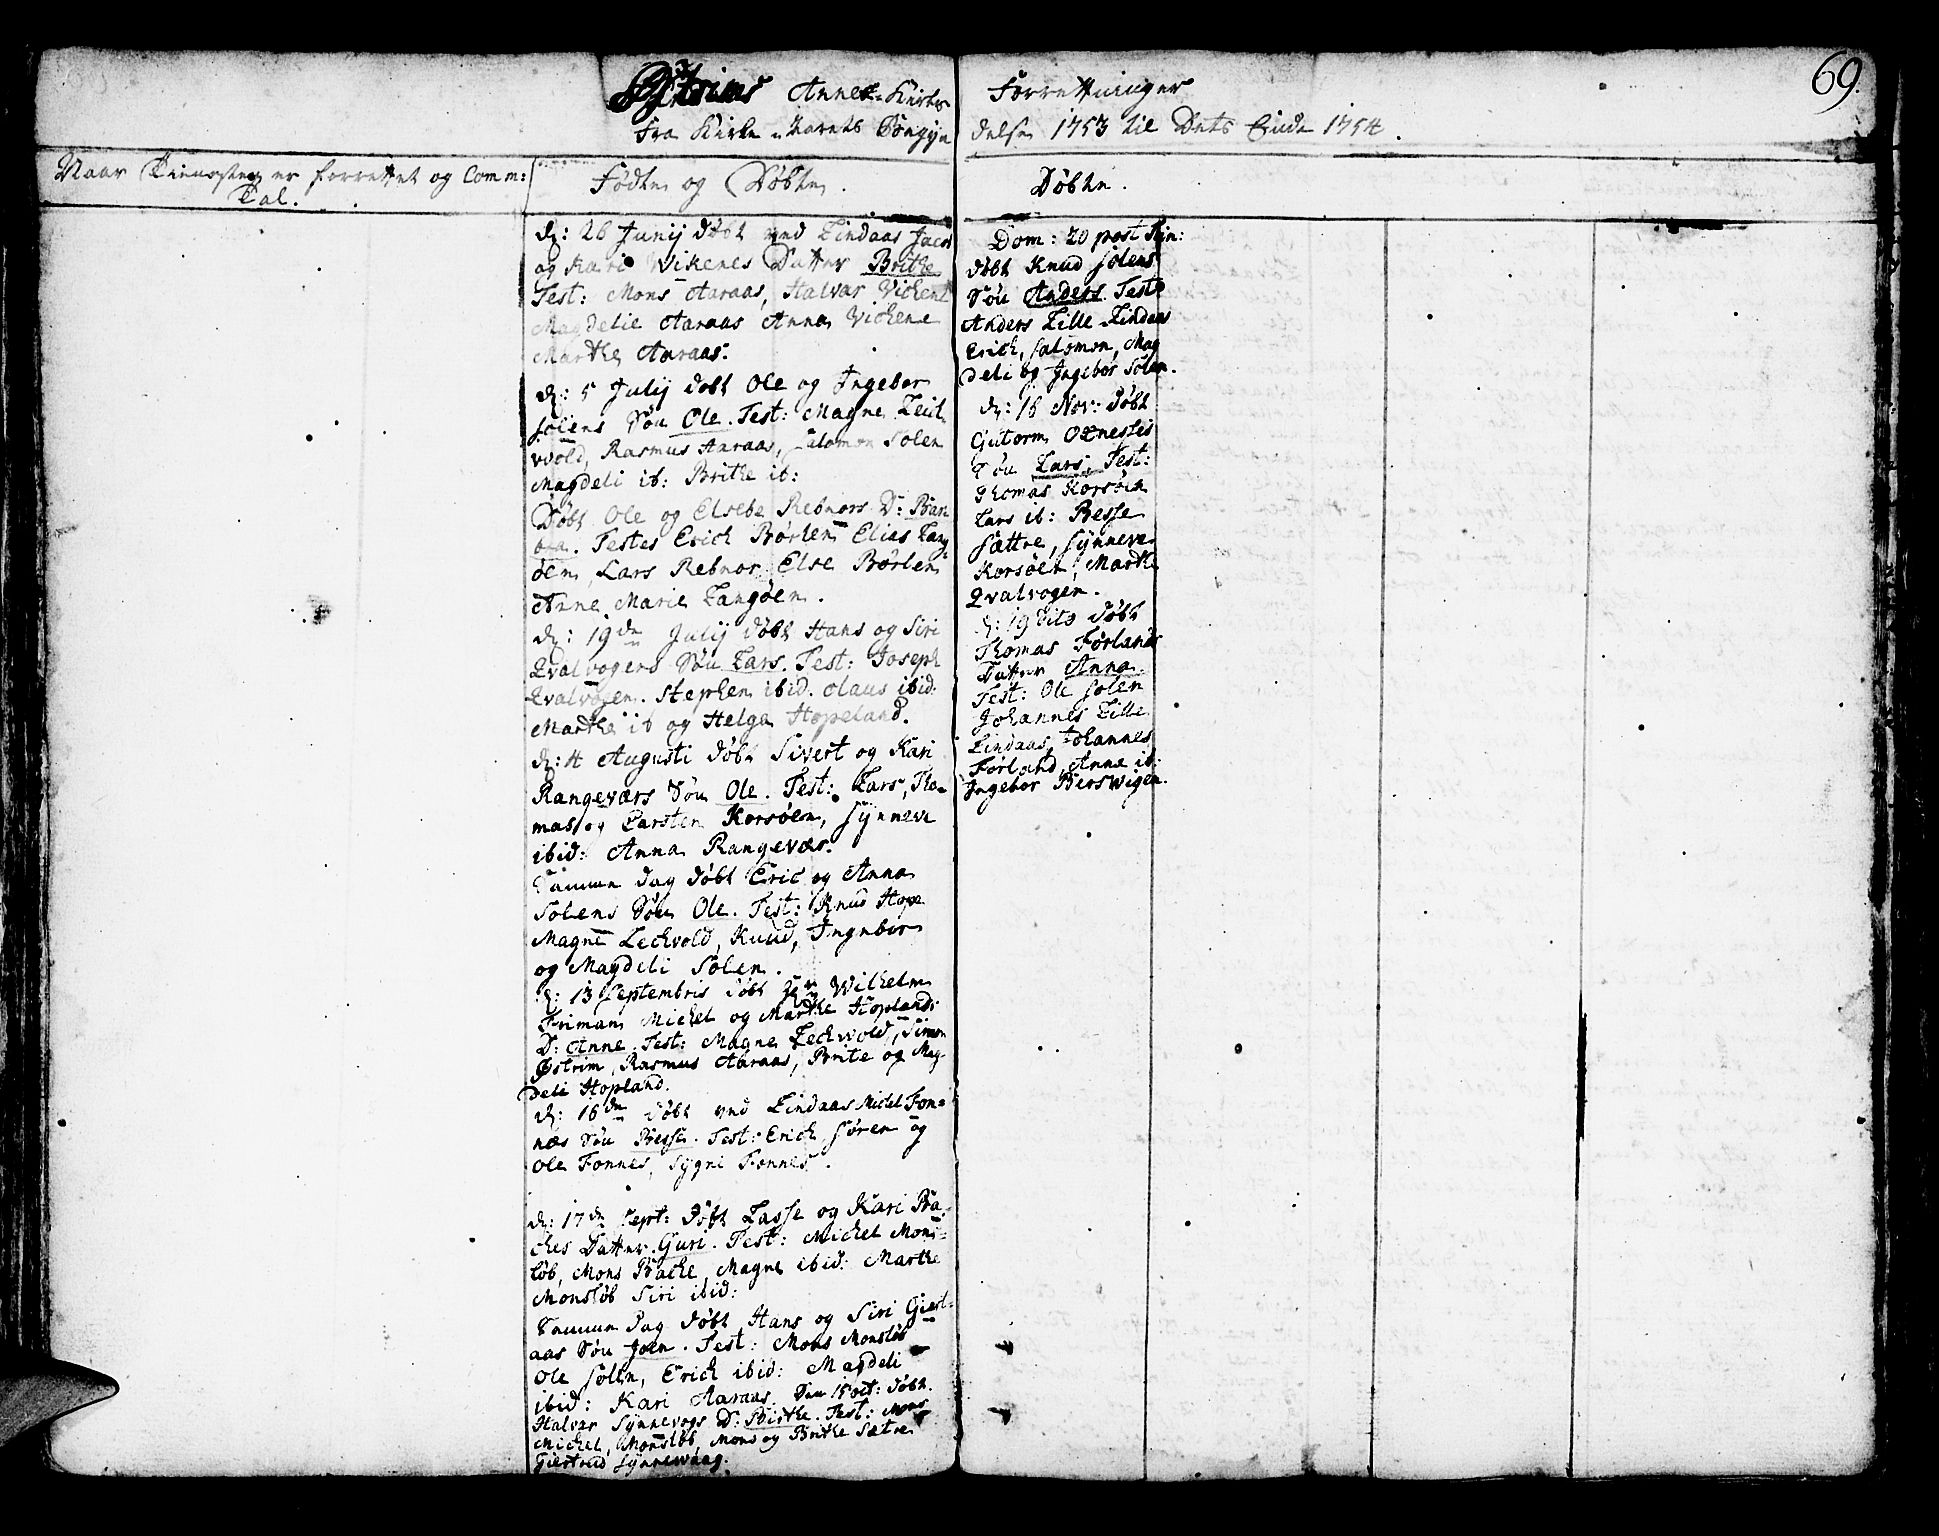 69.
Østrims Annex-Kirkes Forretninger
Fra Kirke-Aarets Begÿndelse 1753 til Dets Ende 1754.
Naar Tienesten er forrettet og Comm:
Tal.
Fødte og Døbte.
d: 26 Junij døbt ved Lindaas Jacob
og Kari Wikenes Datter Brithe
Test: Mons Aaraas, Halvar Vickene
Magdelie Aaraas Anna Vickene
Marthe Aaraas.
d: 5 Julij døbt Ole og Ingebor
Solens Søn Ole. Test: Magne Leck
vold, Rasmus Aaraas, Salomon Solen
Magdeli ib: Brithe ib:
Døbt Ole og Elsebe Rebnors D: Bar
bra. Testes Erich Børlem Elias Lang
øen, Lars Rebnor, Else Børlem
Anne Marie Langøen.
d: 19de Julij døbt Hans og Siri
Qvalvogens Søn Lars. Test: Joseph
Qvalvogen. Stephen ibid. Claus ibid:
Marthe ib og Helga Hopeland.
d: 4 Augusti døbt Sivert og Kari
Rangeværs Søn Ole. Test: Lars, Tho-
mas og Carsten Korsøen, Sÿnneve
ibid: Anna Rangevær.
Samme dag døbt Eric og Anna
Solens Søn Ole. Test: Knud Hope
Magne Leckvold, Knud, Ingebor
og Magdeli Solen.
d: 13 Septembris døbt Wilhelm
Friman Michel og Marthe Hoplands
D: Anne. Test: Magne Leckvold, Simon
Østrim, Rasmus Aaraas, Brite og Mag-
deli Hopland.
d: 16de døbt ved Lindaas Michel Fon-
næs Søn Besse. Test: Erich Søren og
Ole Fonnes, Sygni Fonnes.
d: 17de Sept: døbt Lasse og Kari Ba
ches Datter Guri. Test: Michel Mons-
løb, Mons Bache, Magne ibid: Marthe
Monsløb Siri ibid:
Samme Dag døbt Hans og Siri Giest-
aas Søn Joen. Test: Mons Monsløb
Ole Solen, Erich ibid: Magdeli
ibid: Kari Aaraas. Den 15 oct: døbt
Halvar Synnevogs D: Birthe. Test: Mons
Michel, Monsløb, Mons og Brithe Sætre
Giertrud Synnevaag.
Døbte.
Dom: 20 post Trin:
døbt Knud Solens
Søn Anders. Test
Anders Lille Lindaas
Erich, Salomon, Mag
deli og Ingebor Solen.
d: 16 Nov: døbt
Gutorm Oxnesses
Søn Lars. Test:
Thomas Korsøen
Lars ib: Besse
Sættre, Sÿnneve
Korsøen, Marthe
Qvalvogen.
d: 19 dito døbt
Thomas Førlands
Datter Anna.
Test: Ole Solen
Johannes Lille
Lindaas, Johannes
Førland, Anna ib:
Ingebor Berswigen.